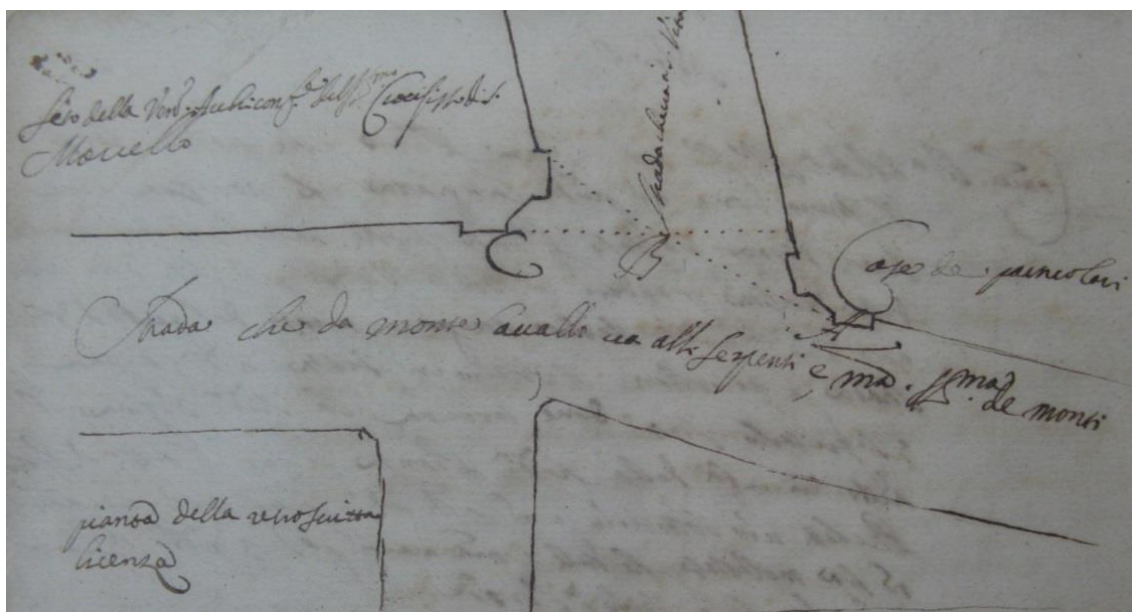 Sito della Ven: Archiconf.ta del SS.mo Crocifisso di S.
Marcello
Strada che va a
B
C
Case de
A
Strada che da monte Cavallo va alli Serpenti e ma. SS.ma de monti
pianta della retroscritta
licenza